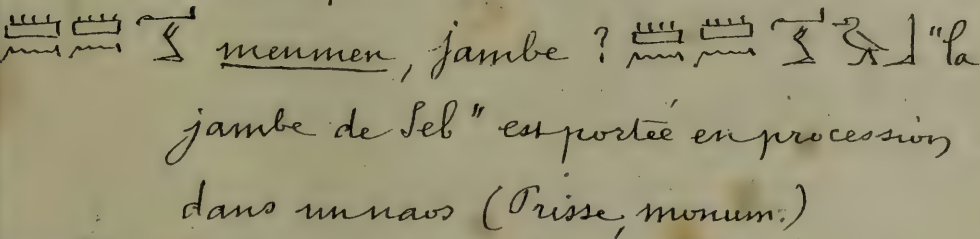 𓏠𓈖𓏠𓈖 menmen, jambe ? 𓏠𓈖𓏠𓈖 𓅬𓃀 "la
jambe de Seb" est portée en procession
dans un naos (Prisse, monum:)